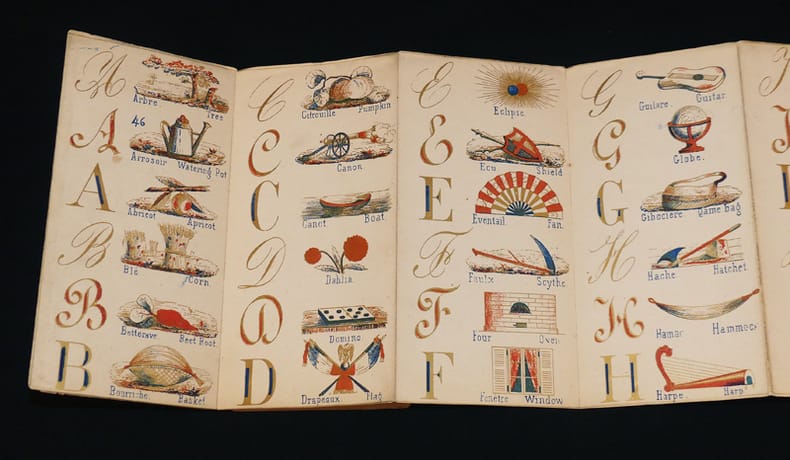 A
Arbre Tree
A
46
Arrosoir Watering Pot
A
Abricot Apricot
B
Blé Corn.
B
Betterave Beet Root
B
Bourriche. Basket
C
Citrouille Pumpkin
C
Canon.
C
Canot Boat
D
Dahlia.
D
Domino.
D
Drapeaux. Flag
E
Eclipse.
E
Ecu Shield
E
Eventail. Fan.
F
Faulx Scythe
F
Four Oven
F
Fenêtre Window
G
Guitare. Guitar.
G
Globe.
G
Gibecière Game bag
H
Hache Hatchet
H
Hamac Hammock
H
Harpe. Harp